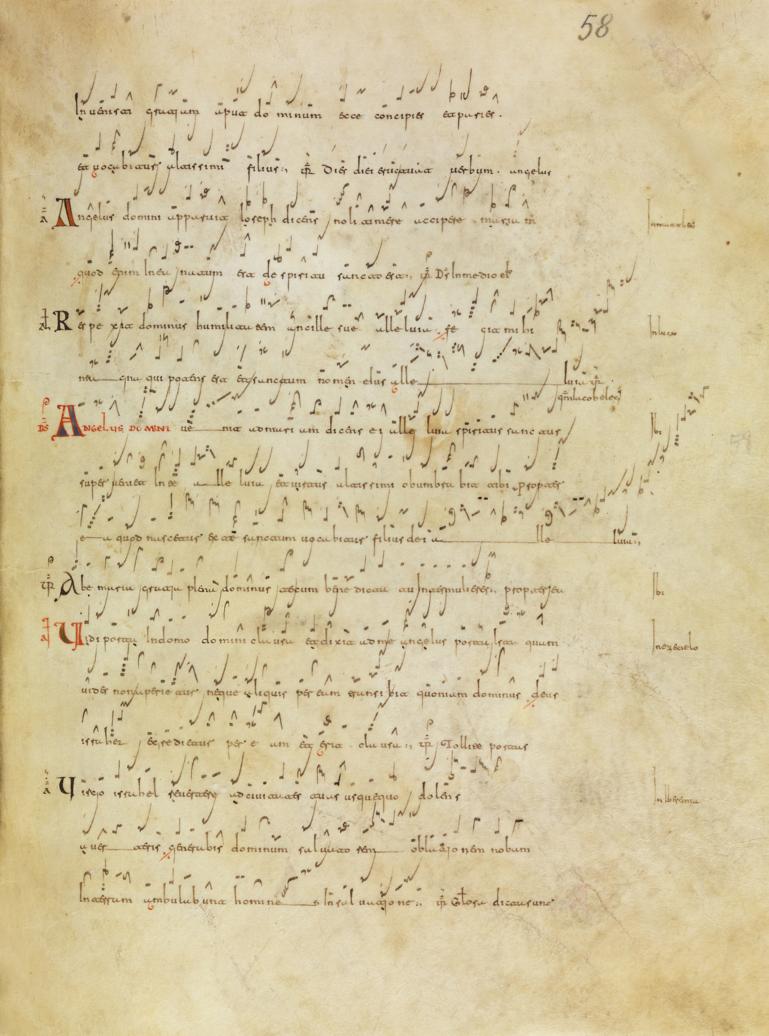 58
Inbenisti gratiam aput dominum ecce concipies et paries.
et uocabitur altissimi filius dies diei eructuat uerbum. angelus
Angelus domini apparuit Ioseph dicens noli timere accipere maria
In matheo
quod enim In ea natum est de spiritu sancto est Ds In medio
Respexit dominus humilitatem ancille sue alleluia fe cit mi hi
In luca
ma gna qui potens est et sanctum nomen eius alle luia
Angelus domini ue nit ad mariam dicens ei alle luia spiritus sanctus
Ibi
super ueniet In te a lle luia et uirtus altissimi obumbra bit tibi propter
e a quod nascetur ex te sanctum uocabitur filius dei a lle luia
Abe maria gratia plena dominus tecum benedicta tu Inter mulieres propterea
Ibi
Uidi portam In domo domini clausa et dixit ad me angelus porta Ista quam
In ezecielo
uides non aperietur neque aliquis per eam transibit quoniam dominus deus
israhel egredietur per e am et erit clausa Tollite portas
Uirgo israhel reuertere ad ciuitates tuas usquequo dolens
In Iheremia
auer teris generabis dominum saluato rem oblationem nobam
In terram ambulabunt homine s In saluatione Gloriosa dicta sunt